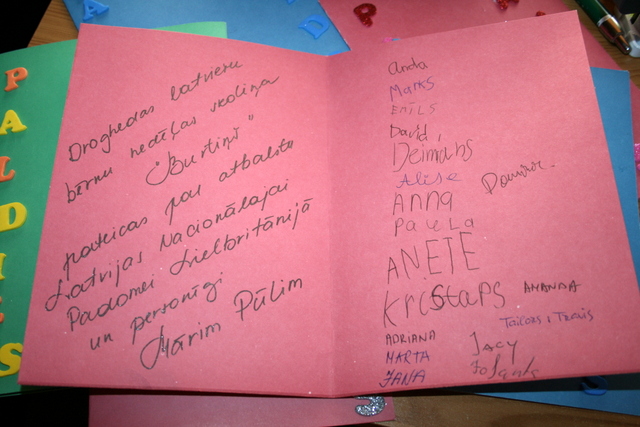 PALDIES
Droghedas latviešu
bērnu nedēļas skoliņa
"Burtiņš"
pateicas par atbalstu
Latvijas Nacionālajai
Padomei Lielbritānijā
un personīgi
Mārim Pūlim
Anda
Marks
EMĪLS
David,
Deimans
Alise
Dominic
Anna
PauLa
ANETE
KriStaps
AMANDA
ADRIANA
MARTA
JANA
Jacy
A
D
P